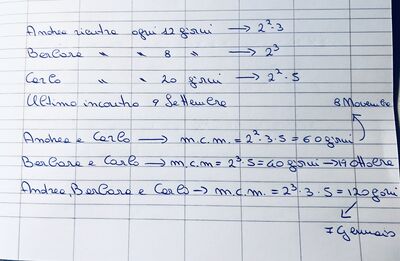 Andrea rientra ogni 12 giorni → 2²·3
Barbara " " 8 " → 2³
Carlo " " 20 giorni → 2²·5
Ultimo incontro 9 Settembre
8 Novembre
Andrea e Carlo → m.c.m. = 2²·3·5 = 60 giorni
Barbara e Carlo → m.c.m = 2³·5 = 40 giorni → 19 ottobre
Andrea, Barbara e Carlo → m.c.m. = 2³·3·5 = 120 giorni
7 Gennaio